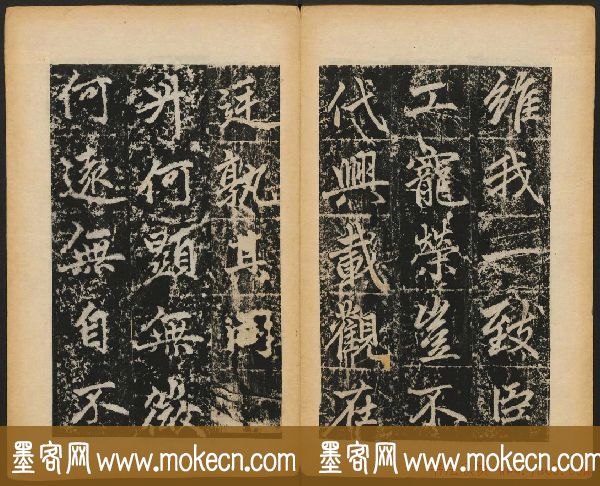 維我一致臣
工寵榮豈不
代興載觀在
廷孰其
升何顯無微
何遠無自不
墨客网 www.mokecn.com
墨客网 www.mokecn.com